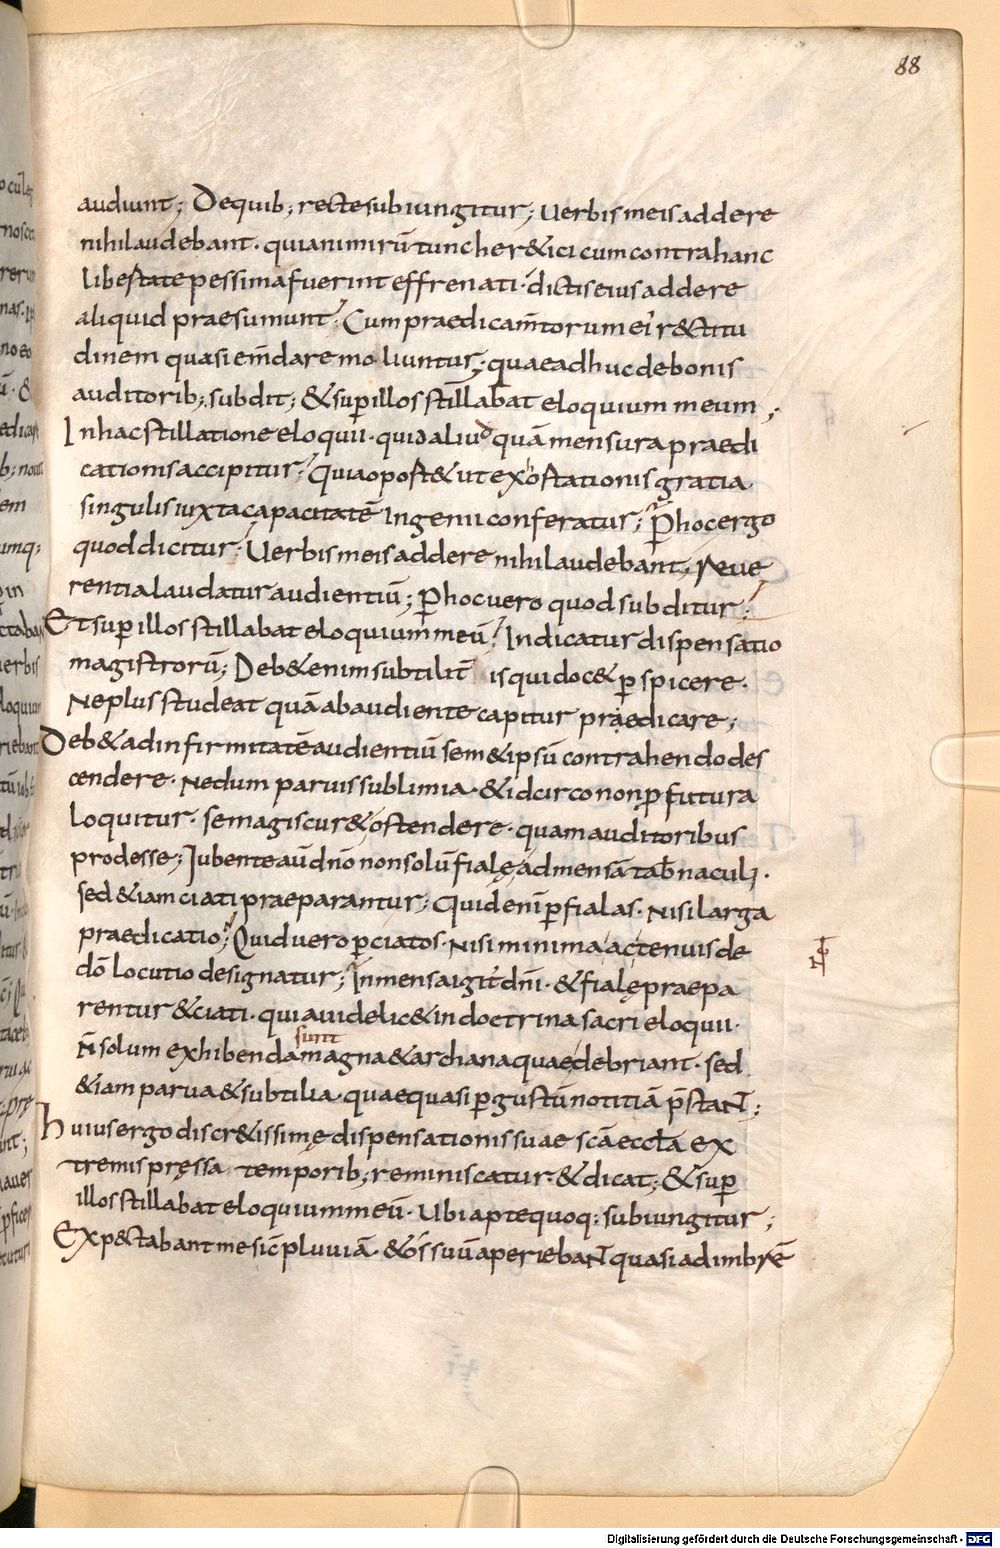 88
audiunt; Dequib; recte subiungitur; Uerbis meis addere
nihil audebant. quia nimirū tunc her&ici cum contra hanc
libertate pessima fuerint effrenati. dictis eius addere
aliquid praesumunt; Cum praedicamtorum ei r&titu
dinem quasi em̄dare moliuntur; quae adhuc de bonis
auditorib; subdit; & sup illos stillabat eloquium meum;
In hac stillatione eloquii. quid aliud quā mensura praedi
cationis accipitur; Quia oport& ut exhortationis gratia
singulis iuxta capacitatē ingenii conferatur; P hoc ergo
quod dicitur; Uerbis meis addere nihil audebant. Reue
rentia laudatur audientiū; P hoc uero quod subditur;
Et sup illos stillabat eloquium meū; Indicatur dispensatio
magistrorū; Deb& enim subtilit̄ is qui doc& pspicere.
Ne plus studeat quā ab audiente capitur praedicare;
Deb& ad infirmitatē audientiū sem&ipsū contrahendo des
cendere. Ne dum paruis sublimia. & idcirco non pfutura
loquitur. se magis cur& ostendere. quam auditoribus
prodesse; Iubente aūt dn̄o non solū fialę ad mensā tab̄naculi.
sed &iam ciati praeparantur; Quid eni p fialas. Nisi larga
praedicatio; Quid uero p ciatos. Nisi minima ac tenuis de
dō locutio designatur; In mensa igit̄ dn̄i. & fialę praepa
rentur & ciati. quia uidelic& in doctrina sacri eloquii.
sunt
N̄ solum exhibenda magna & archana quae debriant. sed
&iam parua & subtilia. quae quasi p gustū notitiā p̄staNT;
Huius ergo discr&issimę dispensationis suae scā eccła ex
tremis pręssa temporib; reminiscatur. & dicat; & sup
illos stillabat eloquium meū. Ubi apte quoq; subiungitur;
Expectabant me sic̄ pluuiā. & os suū aperiebaNT quasi ad imbrē
Digitalisierung gefördert durch die Deutsche Forschungsgemeinschaft - DFG